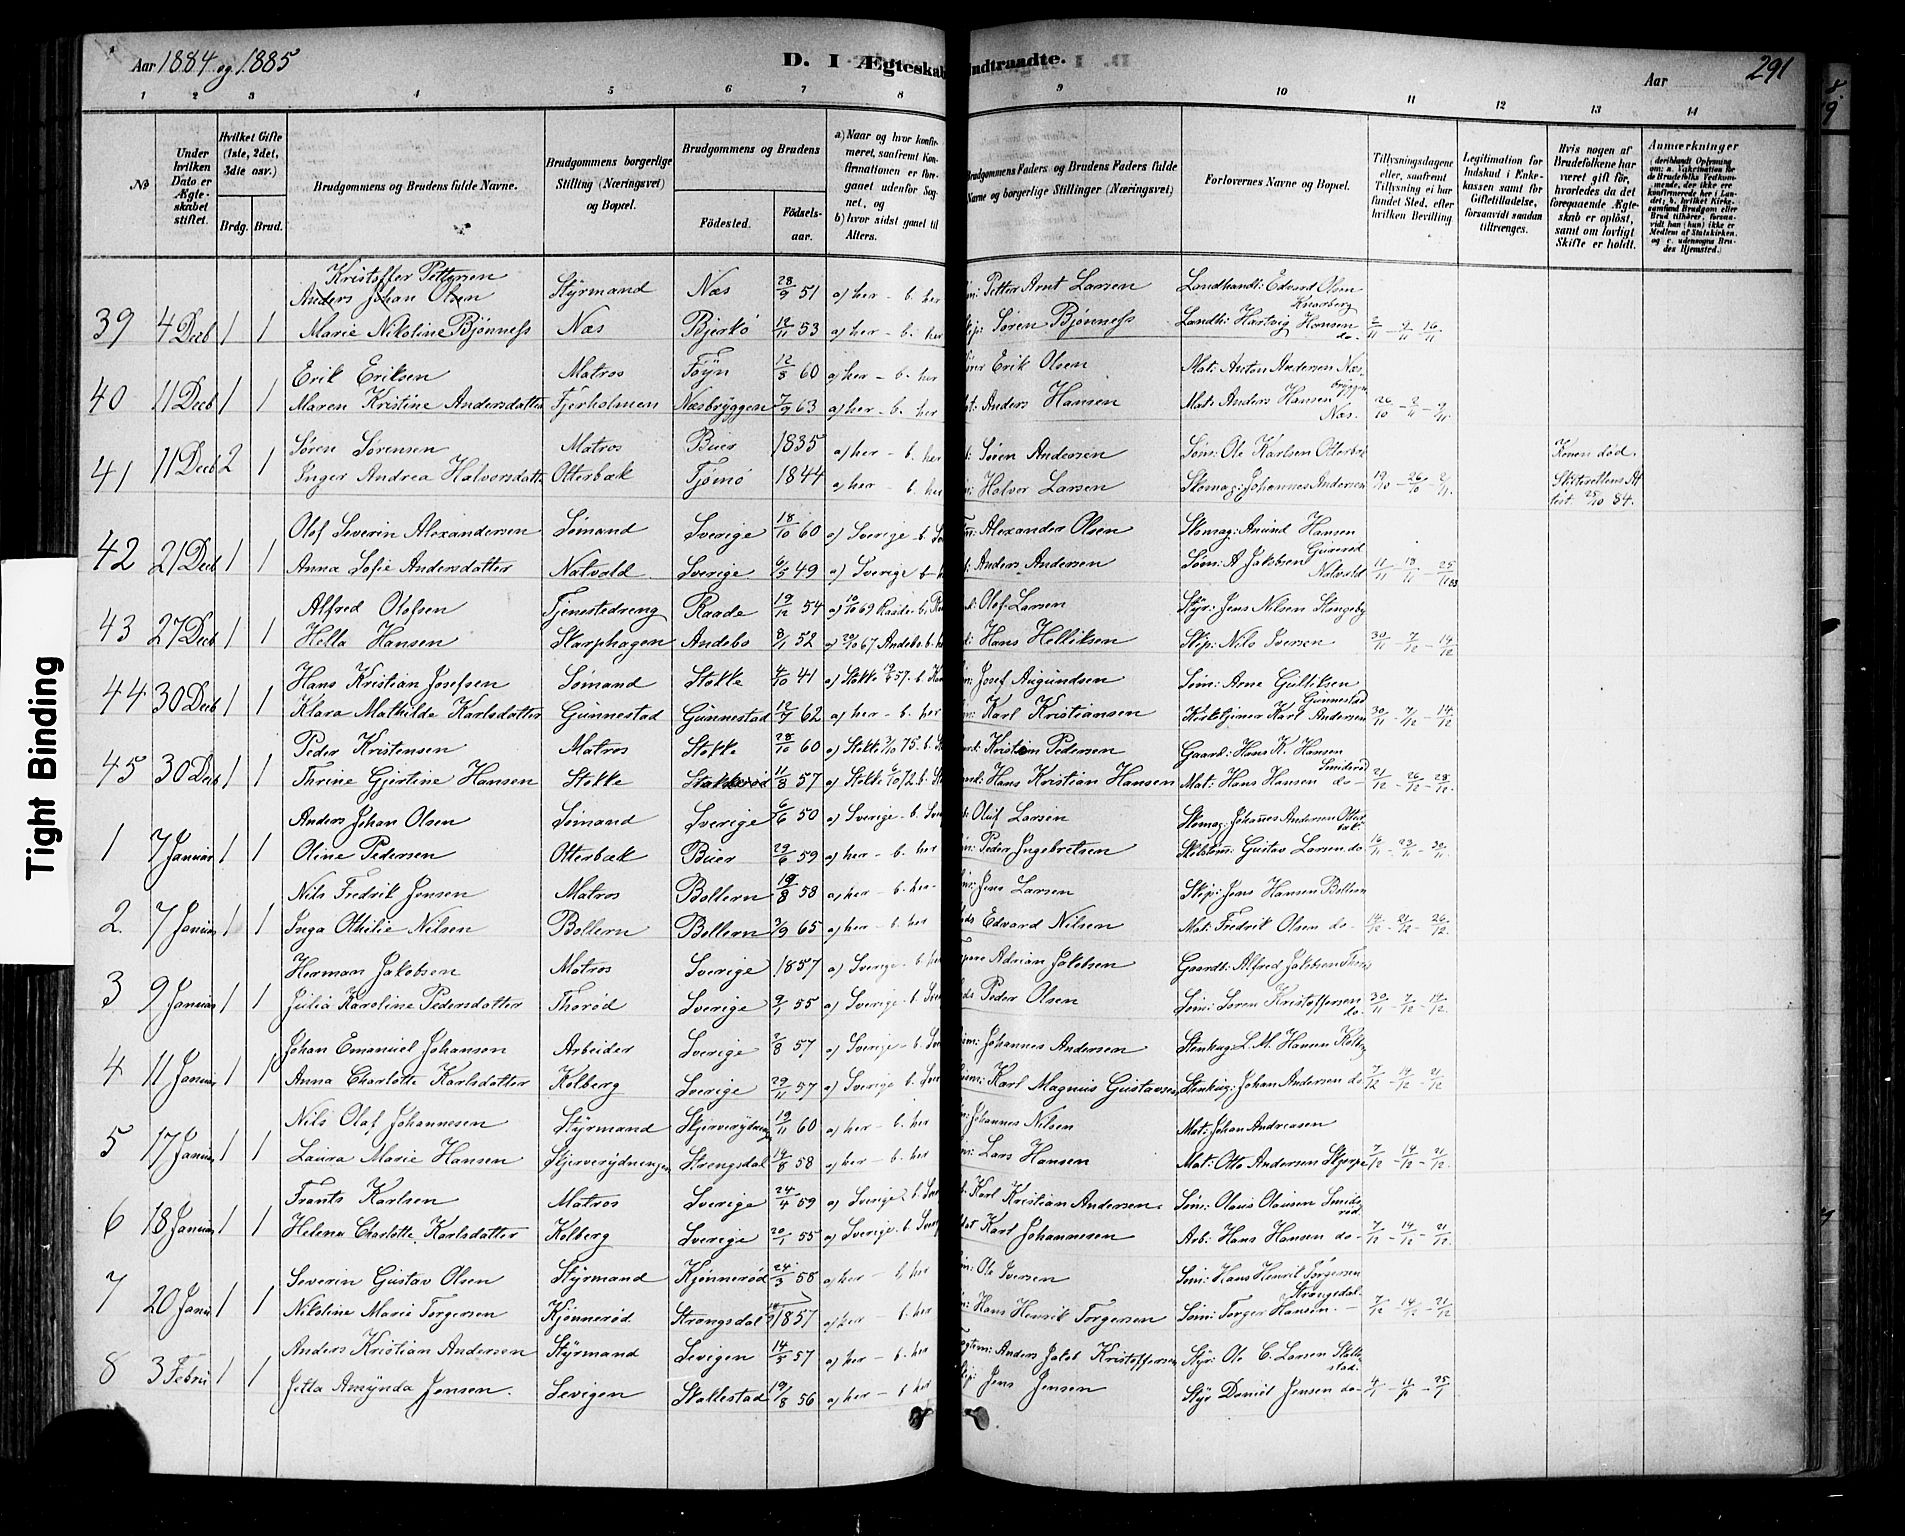 Tight Binding
Aar 1884 og 1885
D. I Ægteskab Indtraadte.
Aar
291
1 2 3 4 5 6 7 8 9 10 11 12 13 14
No
Under hvilken Dato er Ægteskabet stiftet.
Hvilket Gifte (1ste, 2det, 3die osv.)
Brdg. Brud.
Brudgommens og Brudens fulde Navne.
Brudgommens borgerlige Stilling (Næringsvei) og Bopæl.
Brudgommens og Brudens
Fødested. Fødselsaar.
a) Naar og hvor konfirmeret, saafremt Konfirmationen er foregaaet udenfor Sognet, og b) hvor sidst gaaet til Alters.
Brudgommens Faders og Brudens Faders fulde Navne og borgerlige Stillinger (Næringsvei)
Forlovernes Navne og Bopæl.
Tillysningsdagene eller, saafremt Tillysning ei har fundet Sted, efter hvilken Bevilling.
Legitimation for Indskud i Enkekassen samt for Giftetilladelse, forsaavidt saadan tiltrænges.
Hvis nogen af Brudefolkene har været gift før, hvorledes da det foregaaende Ægteskab er opløst, samt om lovligt Skifte er holdt.
Anmærkninger
Kristoffer Pettersen
Anders Johan Olsen Styrmand Næs 28/9 51 a) her - b. her Petter Arnt Larsen Landhandl: Edvard Olsen
Knarberg
39 4 Decb 1 1 Marie Nikoline Bjønness Næs Bjerkø 12/11 53 a) her - b. her Søren Bjønness Landh: Hartvig Hansen do. 2/11 - 9/11 - 16/11
Erik Eriksen Matros Føyn 12/8 60 a) her - b. her Erik Olsen Mat: Anton Andersen Næs
40 11 Decb 1 1 Maren Kristine Andersdatter Fjerholmen Næsbryggen 7/9 63 a) her - b. her Anders Hansen Mat: Anders Hansen Næs. 26/10 - 2/11 - 9/11
Søren Sørensen Matros Buer 1835 a) her - b. her Søren Andersen Søm: Ole Karlsen Otterbæ Konen død.
41 11 Decb 2 1 Inger Andrea Halvorsdatter Otterbæk Tjømø 1844 a) her - b. her Halvor Larsen Skomag: Johannes Andersen 19/10 - 26/10 - 2/11 Skifterettens At
test 25/10 84.
Olof Severin Alexandersen Sømand Sverige 18/10 60 a) Sverige - b. Alexander Olsen Skomag: Amund Hansen
42 21 Decb 1 1 Anna Sofie Andersdatter Natvald Sverige 6/5 49 a) Sverige - b. Anders Andersen Søm: A Jakobsen Natvald 11/11 - 18/11 - 25/11 83
Alfred Olofsen Tjenestedreng Raade 19/12 54 Olof Larsen Styr: Jens Nilsen Stangeby
43 27 Decb 1 1 Hella Hansen Skarphagen Andebo 8/1 52 a) 20/10 67 Andebo. b. Hans Helliksen Skip: Nils Iversen 30/11 - 7/12 - 14/12
Hans Kristian Josefsen Sømand Stokke 4/10 41 a) Stokke 57. b. Josef Augundsen Søm: Arne Gulliksen
Gunnestad
44 30 Decb 1 1 Klara Mathilde Karlsdatter Gunnestad Gunnestad 12/7 62 a) her - b. her Karl Kristiansen Kirketjener Karl Andersen 30/11 - 7/12 - 14/12
Peder Kristensen Matros Stokke 28/10 60 a) Stokke 75. b. Kristian Pedersen Gaard: Hans K. Hansen
Smiderød
45 30 Decb 1 1 Thrine Gjertine Hansen Stokke 11/8 57 a) Stokke 6/10 72. b. Hans Kristian Hansen Mat: Hans Hansen do - 21/12 - 26/12 - 28/12
Anders Johan Olsen Sømand Sverige 6/6 50 a) Sverige - b. Oluf Larsen Skomag: Johannes Andersen Otterbæk
1 7 Januar 1 1 Oline Pedersen Otterbæk Buer 29/6 59 a) her - b. her Peder Ingebretsen Gustav Larsen do 16/11 - 23/11 - 30/11
Nils Fredrik Jensen Matros Bollern 19/8 58 a) her - b. her Jens Larsen Skip: Jens Hansen Bollern
2. 7 Januar 1 1 Inga Othilie Nilsen Bollern Bollern 3/9 65 a) her - b. her Edvard Nilsen Mat: Fredrik Olsen do - 14/12 - 21/12 - 26/12
Herman Jakobsen Matros Sverige 1857 a) Sverige - b. Adrian Jakobsen Gaardb: Alfred Jakobsen
3 9 Januar 1 1 Julia Karoline Pedersdatter Thorød Sverige 9/1 55 a) Sverige - b. Peder Olsen Søm: Søren Kristoffersen do. 30/11 - 7/12 - 14/12
Johan Emanuel Johansen Arbeider Sverige 2/8 57 a) Sverige - b. Johannes Andersen Stenhug: L. M. Hansen Kolb
4 11 Januar 1 1 Anna Charlotte Karlsdatter Kolberg Sverige 29/11 57 a) Sverige b. Karl Magnus Gustavsen Stenhug: Johan Andersen do 7/12 - 14/12 - 21/12
Nils Olaf Johannesen Styrmand Skjerverydningen 19/11 60 a) her - b. her Johannes Nilsen Mat: Johan Andreasen
5 17 Januar 1 1 Laura Marie Hansen Skjerverydningen Strengsdal 14/8 58 a) her - b. her Lars Hansen Mat: Otto Andersen 7/12 - 14/12 - 21/12
Frants Karlsen Matros Sverige 24/4 59 a) Sverige. b. Karl Kristian Andersen. Søm: Olaus Olausen Smidsrød
6 18 Januar 1 1 Helena Charlotte Karlsdatter Kolberg Sverige 20/1 55 a) Sverige - b. Karl Johannesen Arb: Hans Hansen do - 7/12 - 14/12 - 21/12
Severin Gustav Olsen Styrmand Kjønnerød 24/3 58 a) her - b. her Ole Iversen Søm: Hans Henrik Torgersen
Strengsdal
7 20 Janu 1 1 Nikoline Marie Torgersen Kjønnerød Strengsdal 1857 a) her - b. her Hans Henrik Torgersen Søm: Torger Hansen. - 7/12 - 14/12 - 21/12
Anders Kristian Andersen Styrmand Sevigen 14/5 57 a) her - b. her Anders Jakob Kristoffersen Styr: Ole C. Larsen Skallestad
8 3 Febru 1 1 Jetta Amynda Jensen. Sevigen Skallestad 19/8 56 a) her - b. her Jens Jensen Styr Daniel Jensen do - 4/1 - 11/1 - 25/1